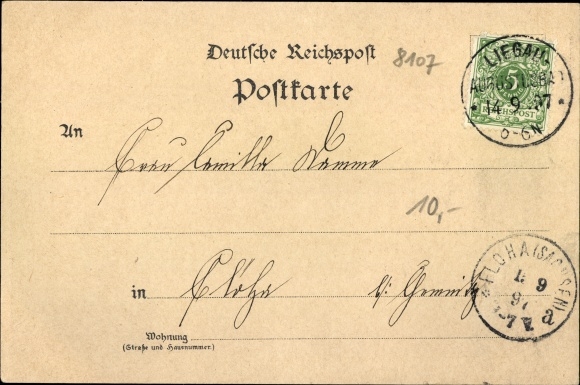 Deutsche Reichspost
8107
Postkarte
LIEGAU-
AUGUSTUSBAD
14 9 97
5-6N
5
REICHSPOST
An
Frau Camilla Damme
10,-
in Flöha b/ Chemnitz
FLÖHA (SACHSEN)
9
97
7 V
a
Wohnung
(Straße und Hausnummer.)